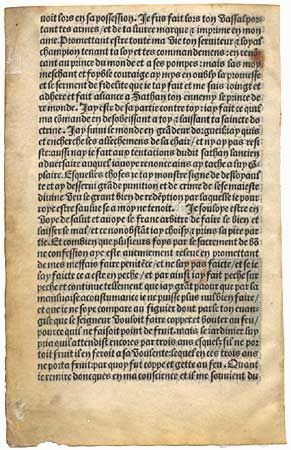 voit lors en sa possession. Je fus fait lors ton Vassal por
tant tes armes / et de ta livree marque & imprime en mon
ame. Promettant estre toute ma Vie ton serviteur & loyal
champion tenant ta loy et tes commandemens : en renon
cant au prince du monde et a ses pompes: mais las moy
meschant et foyble couraige ay mys en oubly ta promesse
et le serment de fidelite que ie tay fait et me suis ioingt et
adhere et fait aliance a Sathan ton ennemy le prince de
ce monde. Jay este de sa partie contre toy: iay fait ce quil
ma commande en desobeissant a toy & laissant ta saincte do
ctrine. Jay suiui le monde en gradeur dorgueil: iay quis
et encherche les allechemens de la chair / et ny ay pas resi
ste: aussi nay ie fait aux tentations dudit sathan lantien
aduersaire auquel iauoye renonce ains ay tache a luy co
plaire. Esquelles choses ie tay monstre signe de desloyaul
te et ay desserui grande punition et de crime de lese maieste
diuine Veu le grant bien de redeption par laquelle ie pour
roye estre saulue se a moy ne tenoit. Je soulope estre en
Voye de salut et auoye le franc arbitre de faire le bien et
laisser se mal / et ce nonobstat iay choisy & prins sa pire par
tie. Et combien que plusieurs foys par se sacrement de bo
ne confession aye este aucunement releue en promettant
de mes meffais faire penitece / et ne lay pas faicte / et se ie
lay faicte ce a este en peche / et par ainsi iay fait peche sur
peche et continue tellement que iay grat paour que par sa
mauuaise acoustumance ie ne puisse plus nul bien faire / et
et que ie ne soye compare au figuier dont parle ton euan
gile que le seigneur Vouloit faire copper et bouter au feu /
pource quil ne faisoit point de fruit. mais le iardinier sup
plia quil attendist encores par trois ans esquelz sil ne por
toit fruit il en feroit a sa Voulente: lequel en ces trois ans
ne porta fruit: par quoy fut coppe et gette au feu. Quant
ie remire doncques en ma conscience et il me souuient du